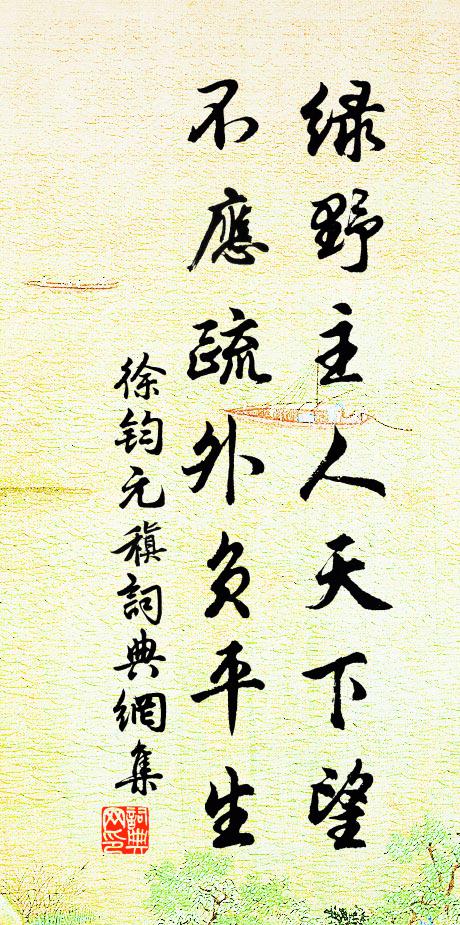 绿野主人天下望
不應疏外负平生
徐钧元稹詞典網集
詞典网印